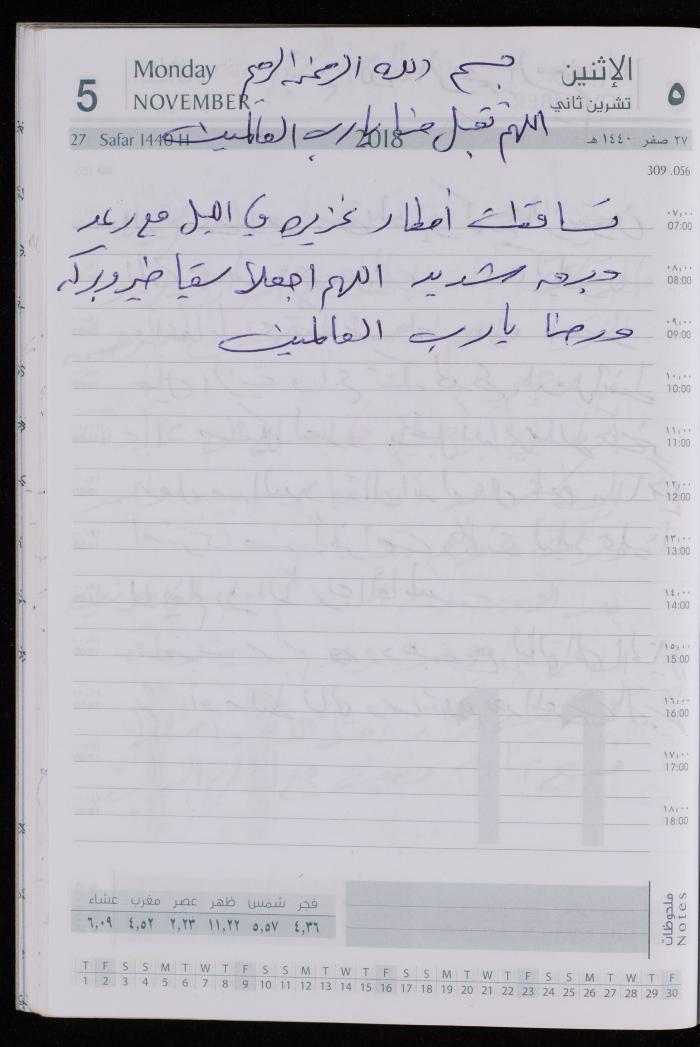 5
Monday
NOVEMBER
الإثنين
تشرين ثاني
٥
بسم الله الرحمن الرحيم
اللهم تقبل منا يا رب العالمين
27 Safar 1440 H
2018
٢٧ صفر ١٤٤٠ هـ
309 .056
تساقطت أمطار غزيره في اليل مع رعد
وبرق شديد اللهم اجعلا سقيا خير وبركه
ورضا يا رب العالمين
٠٧:٠٠
07:00
٠٨:٠٠
08:00
٠٩:٠٠
09:00
١٠:٠٠
10:00
١١:٠٠
11:00
١٢:٠٠
12:00
١٣:٠٠
13:00
١٤:٠٠
14:00
١٥:٠٠
15:00
١٦:٠٠
16:00
١٧:٠٠
17:00
١٨:٠٠
18:00
11
ملحوظات
Notes
فجر شمس ظهر عصر مغرب عشاء
٤,٣٦ ٥,٥٧ ١١,٢٢ ٢,٢٣ ٤,٥٢ ٦,٠٩
T F S S M T W T F S S M T W T F S S M T W T F S S M T W T F
1 2 3 4 5 6 7 8 9 10 11 12 13 14 15 16 17 18 19 20 21 22 23 24 25 26 27 28 29 30